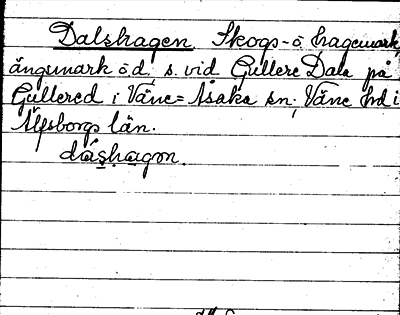 Dalshagen Skogs- o hagemark,
ängsmark öd, s. vid Gullere Dala på
Gullered i Väne=Åsaka sn, Väne hd i
Älfsborgs län.
dáshagọn.